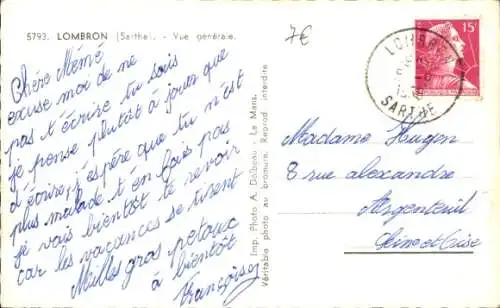 5793. LOMBRON (Sarthe). - Vue générale.
7€
Chère Mémé
excuse moi de ne
pas t'écrire tu sais
je pense plutôt à jouer que
d'écrire, j'espère que tu n'est
plus malade t'en fais pas
je vais bientôt te revoir
car les vacances se tirent
Milles gros
à bientôt
Françoise
Imp. Photo A. Dolbeau - Le Mans.
Véritable photo au bromure. Reprod interdite
LOMBRON
SARTHE
15F
Madame Hugon
8 rue alexandre
Argenteuil
Seine et Oise